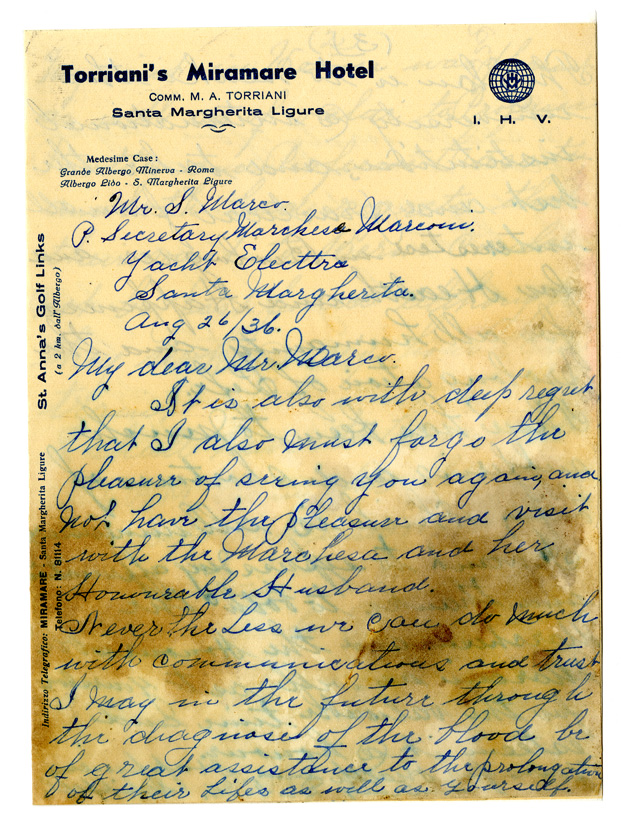 Torriani's Miramare Hotel
COMM. M. A. TORRIANI
Santa Margherita Ligure
I. H. V.
Medesime Case:
Grande Albergo Minerva - Roma
Albergo Lido - S. Margherita Ligure
St. Anna's Golf Links
(a 2 km. dall'Albergo)
Indirizzo Telegrafico: MIRAMARE - Santa Margherita Ligure
Telefono: N. 81114
Mr. S. Marco.
P. Secretary Marchese Marconi.
Yacht Electtra
Santa Margherita.
Aug 26/36.
My dear Mr. Marco.
It is also with deep regret
that I also must forgo the
pleasure of seeing you again, and
not have the pleasure and visit
with the Marchesa and her
Honourable Husband.
Never the Less we can do much
with communications and trust
I may in the future through
the diagnosis of the blood be
of great assistance to the prolongation
of their Lifes as well as yourself.